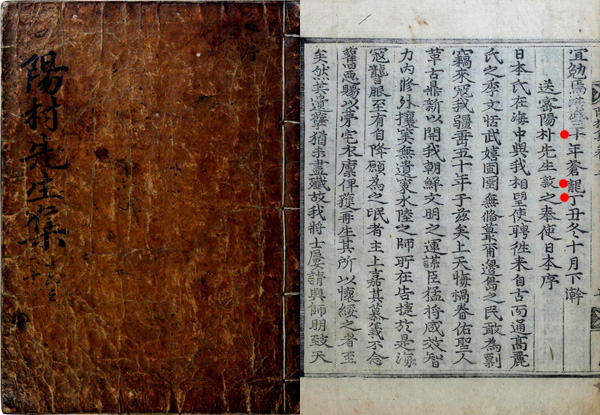 陽村先生集
十年蒼龍丁丑冬十月下澣
送密陽村先生敦之奉使日本序
日本氏在海中與我相望使聘徃来自古而通高麗
氏之季文恬武嬉囹圄無脩蕞爾邊島之民敢為剽
竊來寇我疆啚五十年于玆矣上天悔禍眷佑聖人
革古鼎新以開我朝鮮文明之運謀臣猛將咸效智
力內修外攘寔無遺策水陸之師所在告捷於是海
寇讋服至有自降願為之氓者主上嘉其慕義不念
舊惡賜以第宅衣廩俾獲再生其所以懷綏之者至
矣然其遺孽猶未盡殱故我將士屢請興師明致天